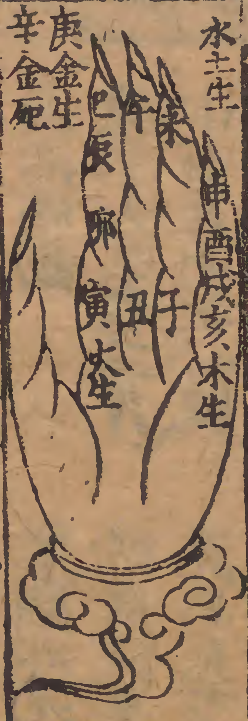 水土生
申酉戌亥木生
未子
午丑
巳辰卯寅火生
庚金生
辛金死